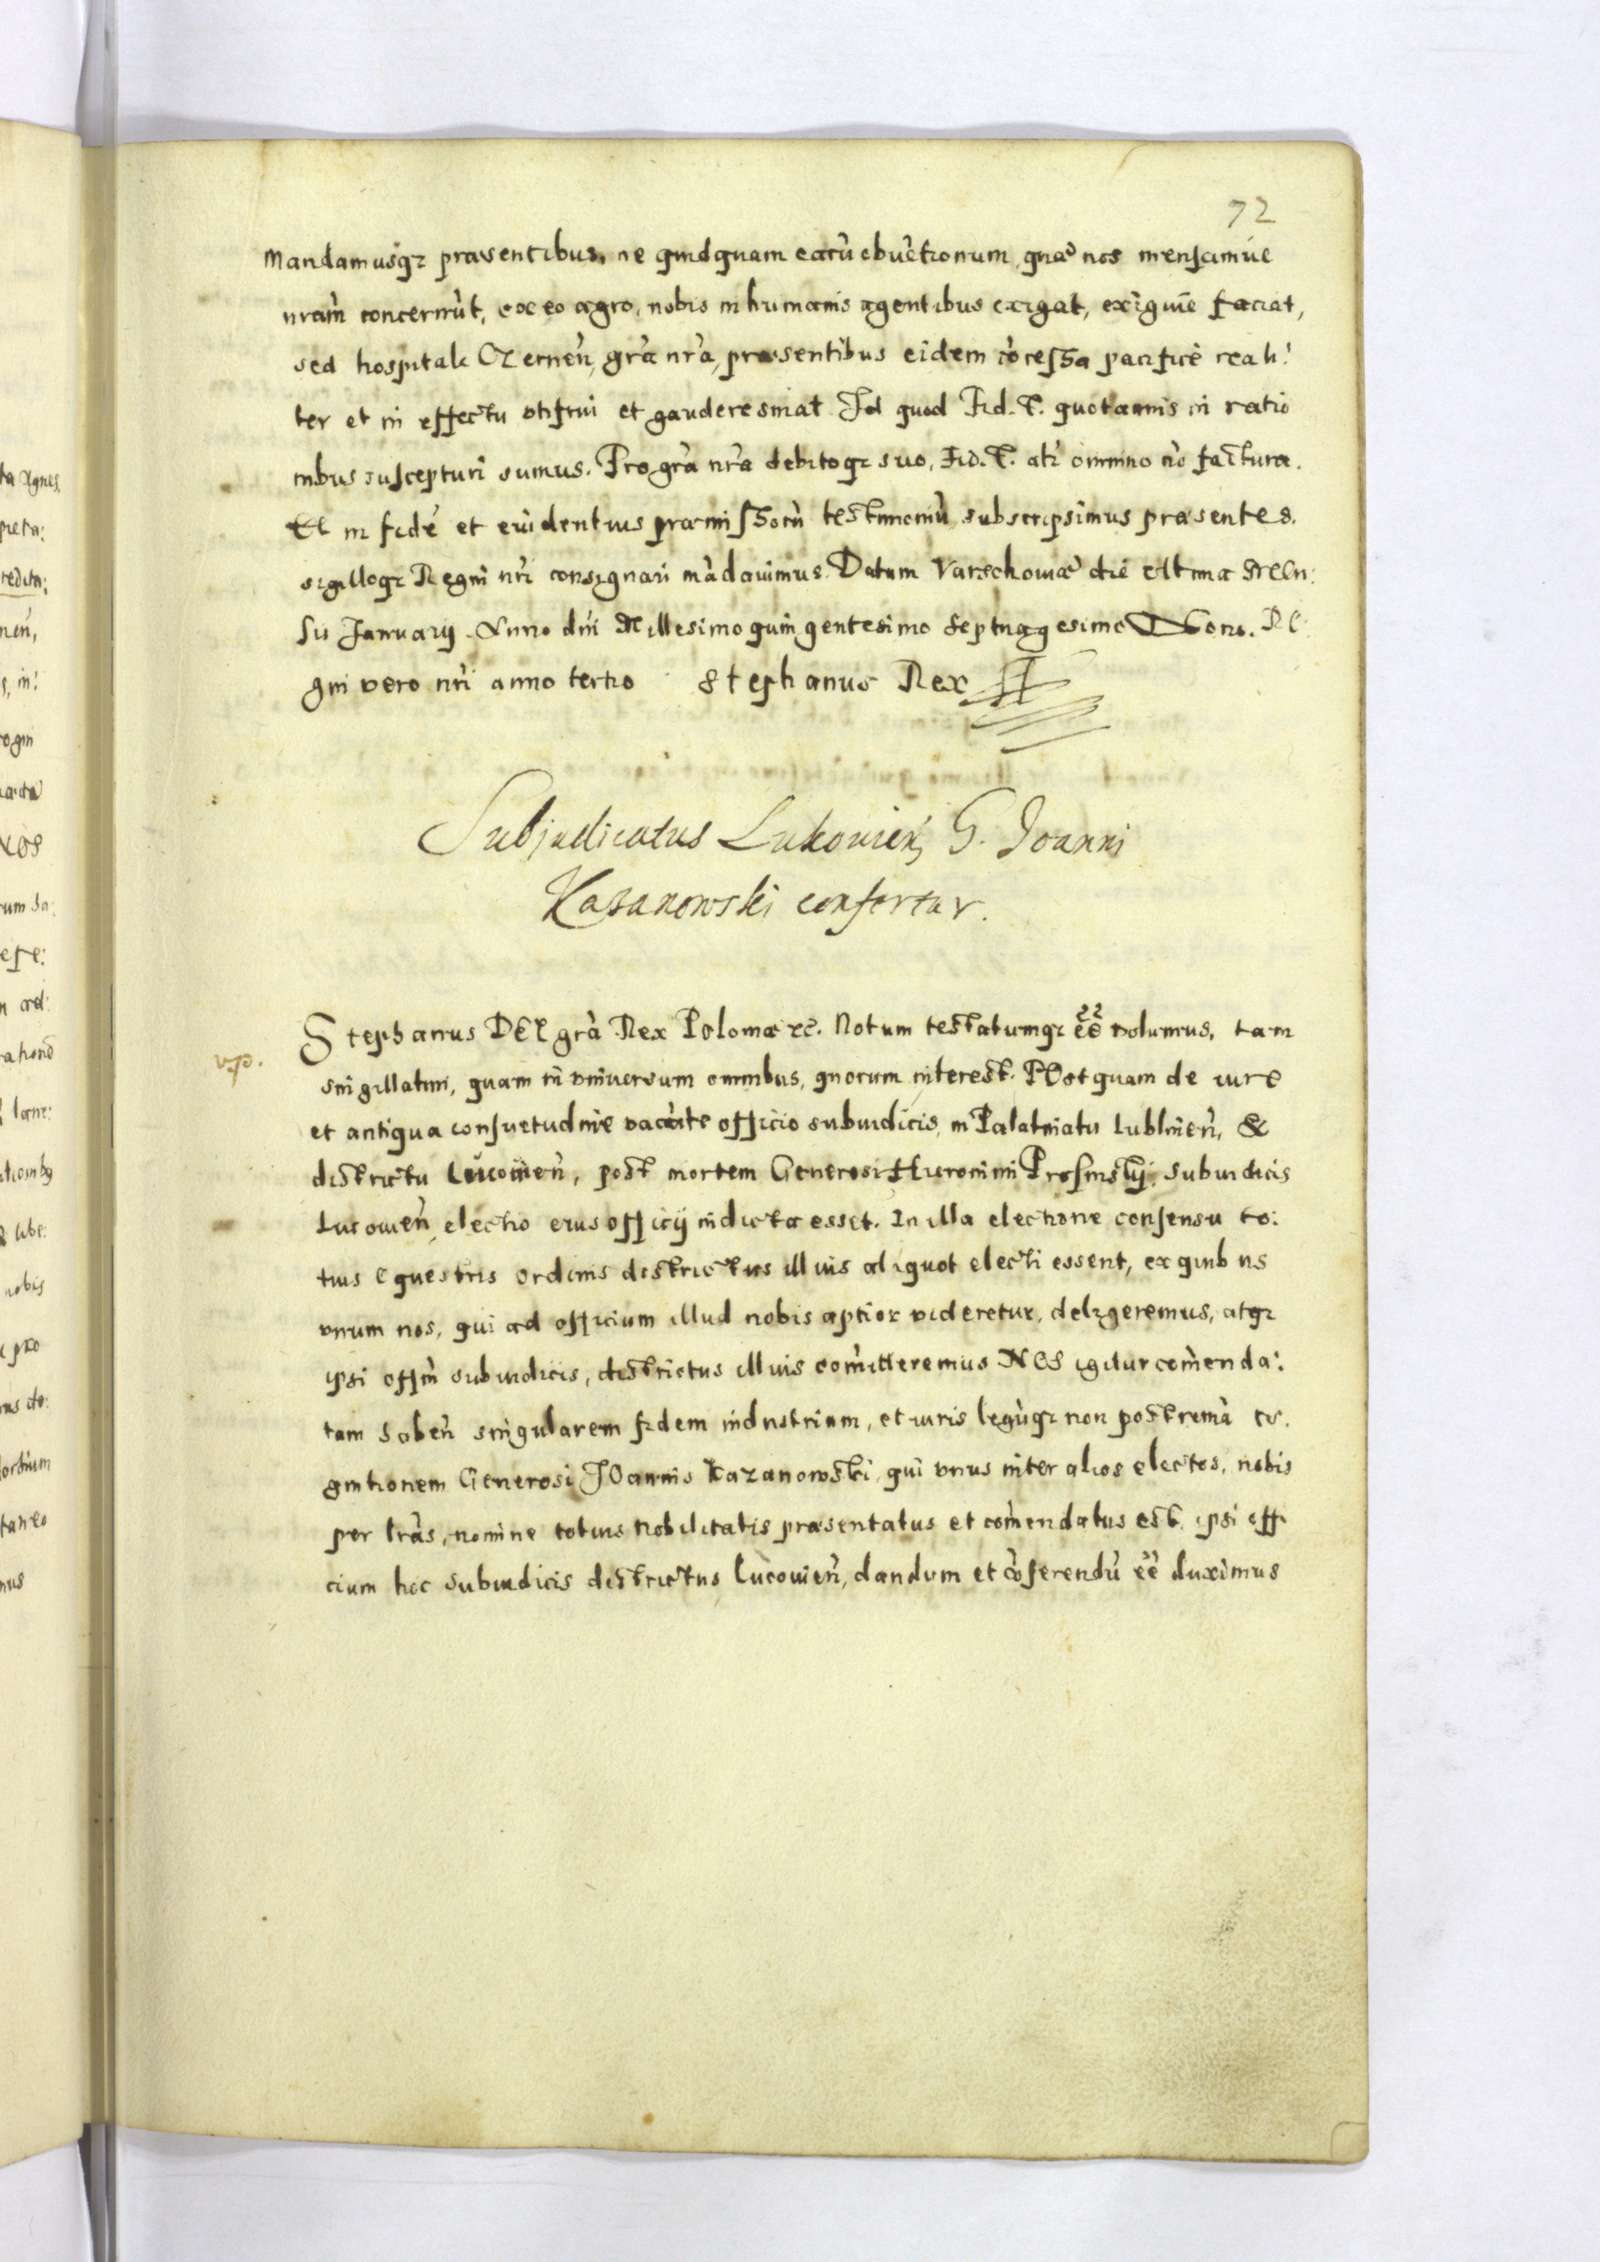 72
Mandamusq₃ præsentibus, ne quidquam earũ obuẽtionum, quæ nos mensamúe
nrām concernũt, ex eo agro, nobis in humanis agentibus exigat, exigiúe faciat,
sed hospitale Czernen̄, grā nrā, præsentibus eidem cõcessa pacificè reali:
ter et in effectu vtifrui et gaudere sinat Id quod Fid. T. quotannis in ratio
nibus suscepturi sumus. Pro grā nrā debitoq₃ suo, Fid. T. alr̃ omnino nõ factura.
Et in fidẽ et euidentius præmissorũ testimoniũ subscripsimus præsentes.
sigilloq₃ Regni nr̃i consignari mãdauimus. Datum Varschouiæ die vltima Men:
sis Januarij. Anno dñi Millesimo quingentesimo septuagesimo Nono. Re:
gni vero nr̃i anno tertio Stephanus Rex
Subjudicatus Lukouien̄, G. Joanni
Kazanowski confertur.
Stephanus DEI grā Rex Poloniæ zc̃. Notum testatumq₃ eẽ volumus, tam
singillatim, quam in vniuersum omnibus, quorum interest. POstquam de iure
et antiqua consuetudine vacãte officio subiudicis, in Palatinatu Lublinen̄, &
districtu Lucouien̄, post mortem Generosi Hieronimi Subiudicis
Lucouien̄ electio eius officij indicta esset. In illa electione consensu to:
tius equestris ordinis districtus illius aliquot electi essent, ex quibus
vnum nos, qui ad officium illud nobis aptior videretur, deligeremus, atq₃
ipsi offm̃ subiudicis, districtus illius com̃itteremus NOS igitur com̃enda:
tam haben̄ singularem fidem industriam, et iuris legũq₃ non postremã co:
gnitionem Generosi JOannis Kazanowski, qui vnus inter alios electos, nobis
per lrãs, nomine totius nobilitatis præsentatus et com̃endatus est, ipsi offi
cium hoc subiudicis districtus Lucouien̄, dandum et cõferendũ eẽ duximus